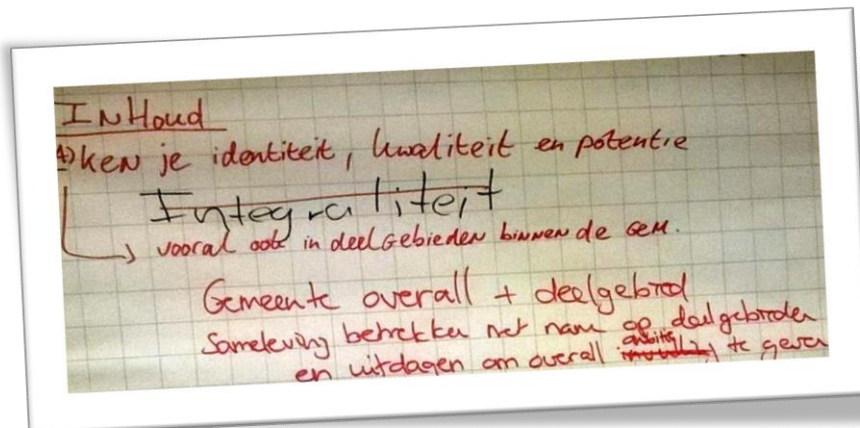 INHoud
A) ken je identiteit, kwaliteit en potentie
Integraliteit
vooral ook in deelgebieden binnen de gem.
Gemeente overall + deelgebied
Samenleving betrekken met name op deelgebieden
en uitdagen om overall ambitie te geven